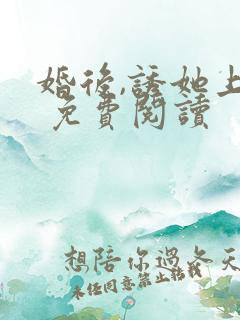 婚後,誘她上
免費閱讀
想陪你過冬天
未经同意禁止转载